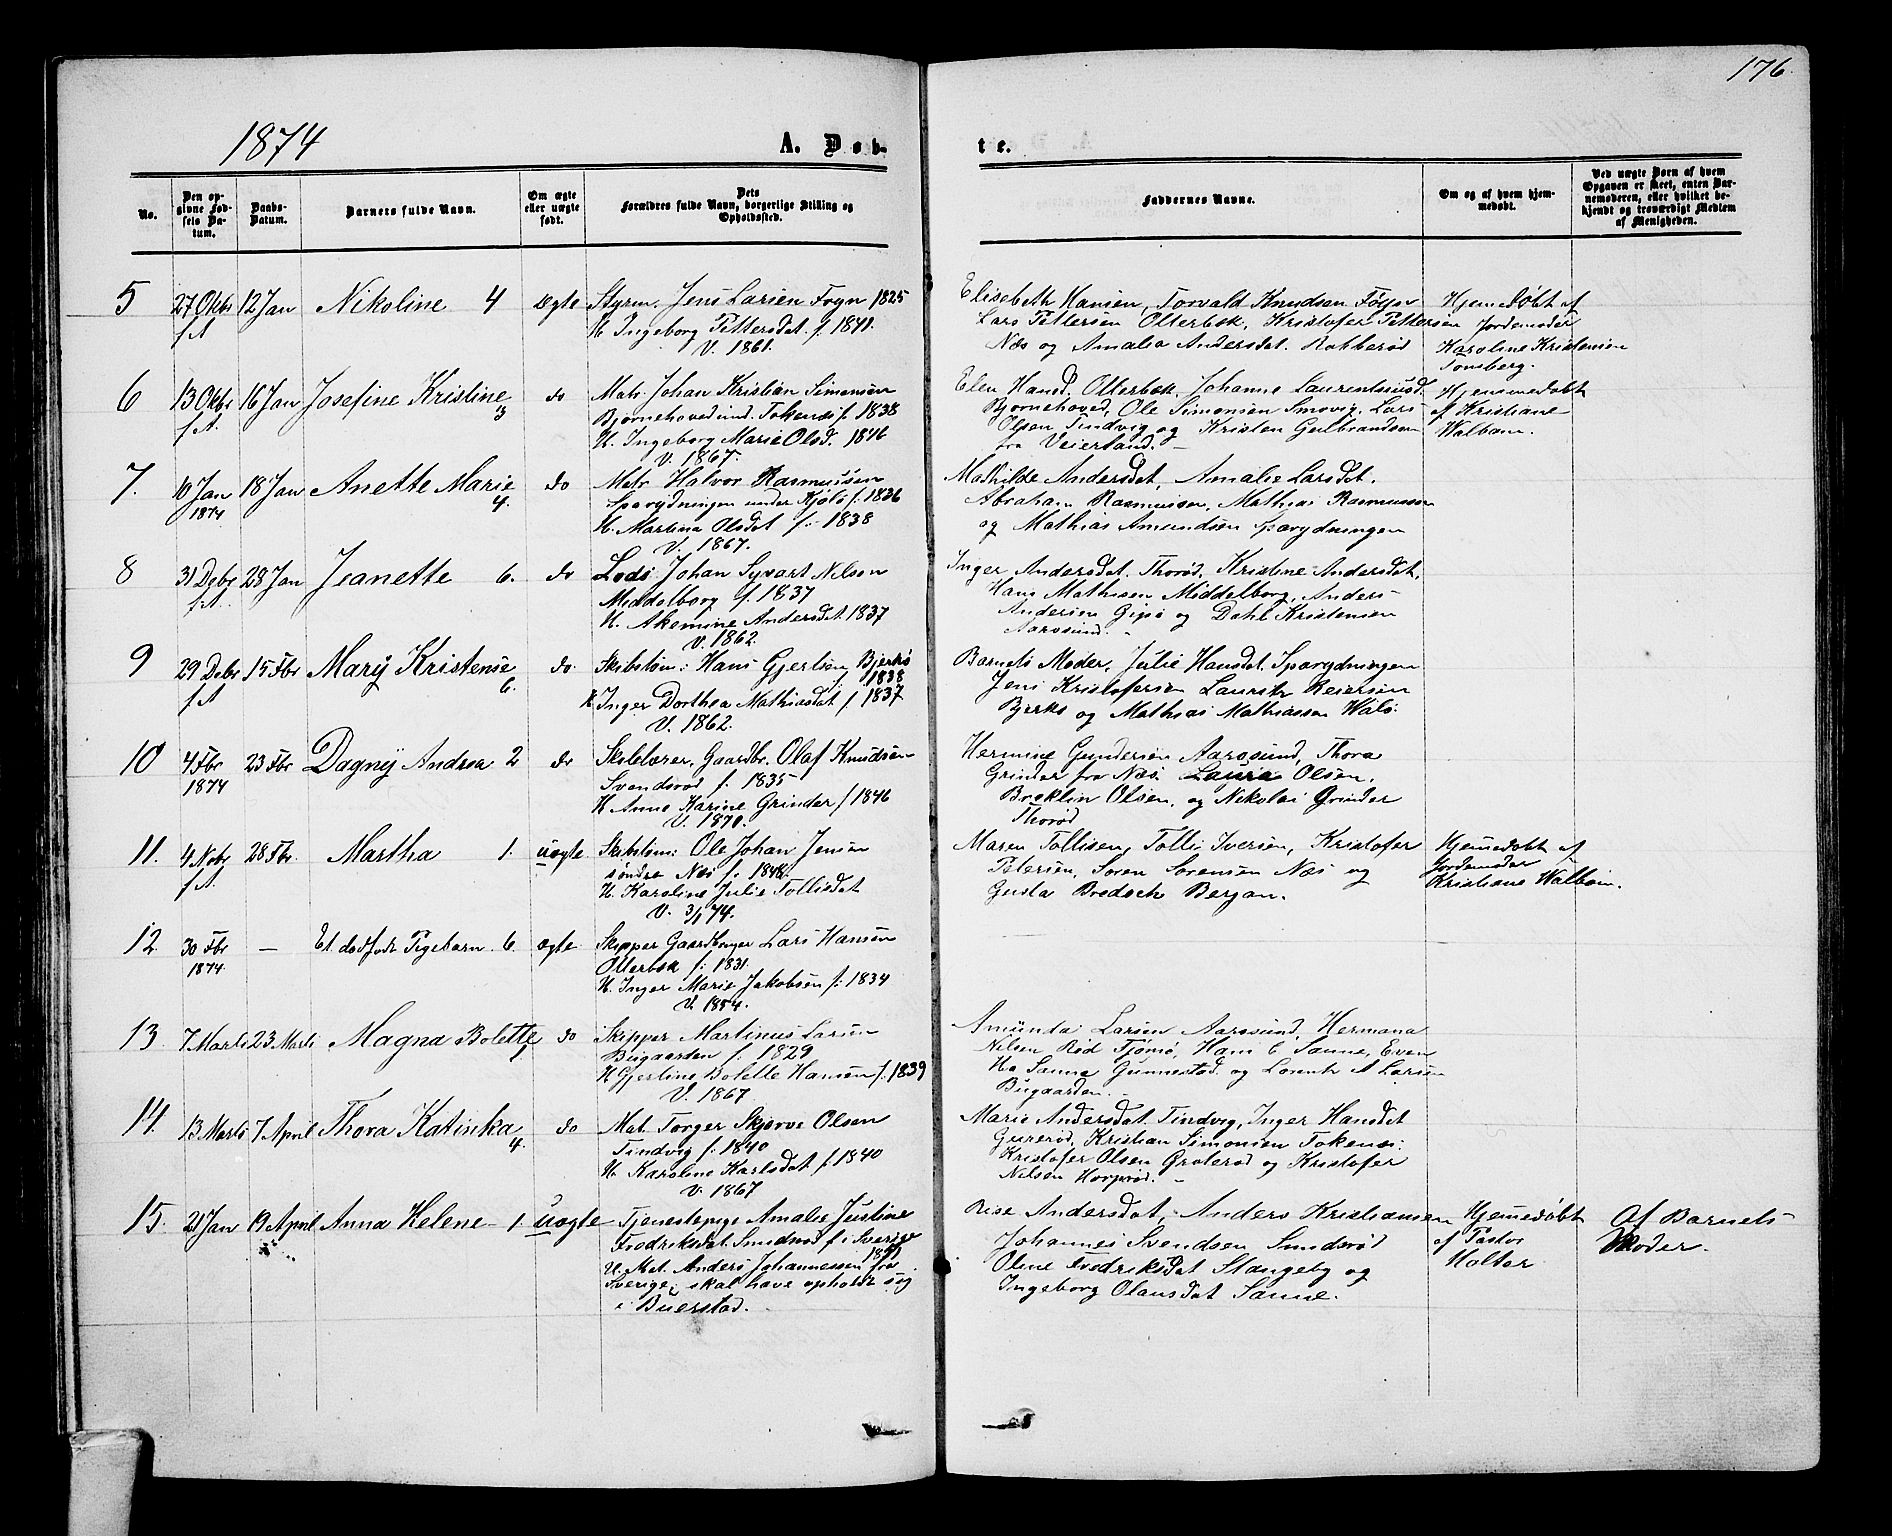 176.
1874
A. Døb-
te.
No.
Den op-
givne Fød-
sels Da-
tum.
Daabs-
Datum.
Barnets fulde Navn.
Om ægte
eller uægte
født.
Dets
Forældres fulde Navn, borgerlige Stilling og
Opholdssted.
Faddernes Navne.
Om og af hvem hjem-
medøbt.
Ved uægte Børn af hvem
Opgaven er skeet, enten Bar-
nemoderen, eller hvilket be-
kjendt og troværdigt Medlem
af Menigheden.
5 27 Oktbr 12 Jan Nikoline 4 Ægte
f A
Styrm. Jens Larsen Fogn 1825
H. Ingeborg Pettersdat. f. 1841.
V. 1861.
Elisebeth Hansen, Torvald Knudsen
Lars Pettersen Otterbek, Kristofer Pettersen
Næs og Amalia Andersdat. Rakkerød
Hjemedøbt af
Jordemoder
Karoline Kristensen
Tønsberg.
6 13 Oktbr 16 Jan Josefine Kristine 3 do
f A.
Matr. Johan Kristian Simonsen
Bjørnehoved und. Tokenæs f. 1838
H. Ingeborg Marie Olsd. 1846
V. 1867.
Elen Hansd. Otterbek. Johanne Laurentiusd.
Bjørnehoved, Ole Simonsen Smovig, Lars
Olsen Tindvig og Kristen Gulbrandsen
fra Veierland. -
Hjemmedøbt
af Kristiane
Walbom.
7. 10 Jan 18 Jan Anette Marie 4. do
1874
Matr. Halvor Rasmussen
Sparydningen under Kjøle f. 1836
H. Martina Olsdat f. 1838
V. 1867.
Mathilde Andersdat, Amalie Larsdat.
Abraham Rasmussen, Mathias Rasmussen
og Mathias Amundsen Sparydningen
8 31 Debr 28 Jan Jeanette 6. do
f. A.
Lods Johan Syvart Nilsen
Middelborg f. 1837
H. Akemine Andersdat 1837
V. 1862.
Inger Andersdat. Thorød, Kristine Andersdat,
Hans Mathisen Middelborg, Anders
Andersen Gipø og Dahl Kristensen
Aarøsund. -
9 29 Debr 15 Fbr Mary Kristense 6. do.
f A
Skibstøm: Hans Gjertsen Bjerkø
f 1838
H Inger Dorthea Mathiasdat f. 1837
V. 1862.
Barnets Moder, Julie Hansdat. Sparydningen
Jens Kristofersen Lauritz Reiersen
Bjerkø og Mathias Mathiassen Walø.
10 4 Fbr 23 Fbr Dagny Andrea 2 do
1874
Skibfører, Gaardbr. Olaf Knudsen
Svendsrød f. 1835
H Anne Karine Grinder f 1846
V. 1870.
Hermine Gundersen Aarøsund, Thora
Grinder fra Næs. Laura Olsen.
Breklin Olsen, og Nikolai Grinder
Thorød
11. 4 Nobr 28 Fbr. Martha 1. uægte
f A.
Skibstøm: Ole Johan Jensen
søndre Næs f. 1848.
H. Karoline Julie Tollisdat
V. 3/1 74.
Maren Tollisen, Tolli Iversen, Kristofer
Petersen, Søren Sørensen Næs og
Gusta Bredsek Bergan.
Hjemedøbt af
Jordemoder
Kristiane Walbom.
12. 30 Fbr — Et dødfødt Pigebarn. 6. ægte
1874.
Skipper Gaardbruger Lars Hansen
Otterbek f: 1831.
H. Inger Marie Jakobsen f. 1834
V. 1854.
13. 7 Marts 23 Marts Magna Bolette 1 do
Skipper Martinus Larsen
Bugaarden f. 1829
H Gjertine Bolette Hansen f. 1839
V. 1867
Amunda Larsen Aarøsund, Hermana
Nilsen Rød Tjømø, Hans C Sanne, Even
Ha Sanne Gunnestad og Lorentz A Larsen
Bugaarden. -
14. 13 Marts 7 April Thora Katinka 4. do
Mat. Torger Skjerve Olsen
Tindvig f. 1840
H. Karoline Karlsdat f. 1840
V. 1867
Marie Andersdat. Tindvig, Inger Hansdat
Gurerød, Kristian Simonsen Tokenæs.
Kristofer Olsen Grøterød og Kristofer
Nilsen Horperød. -
15. 21 Jan 19 April Anna Helene 1. Uægte
Tjenestepige Amalie Justine
Fredriksdat. Smidsrød f. i Sverige
1851
U. Mat. Anders Johannessen fra
Sverige, skal have opholdt sig
i Buerstad.
Rise Andersdat, Anders Kristiansen
Johannes Svendsen Smidsrød
Oline Fredriksdat Slangeby og
Ingeborg Olausdat Sanne.
Hjemedøbt
af Pastor
Holter
Af Barnets
Moder.